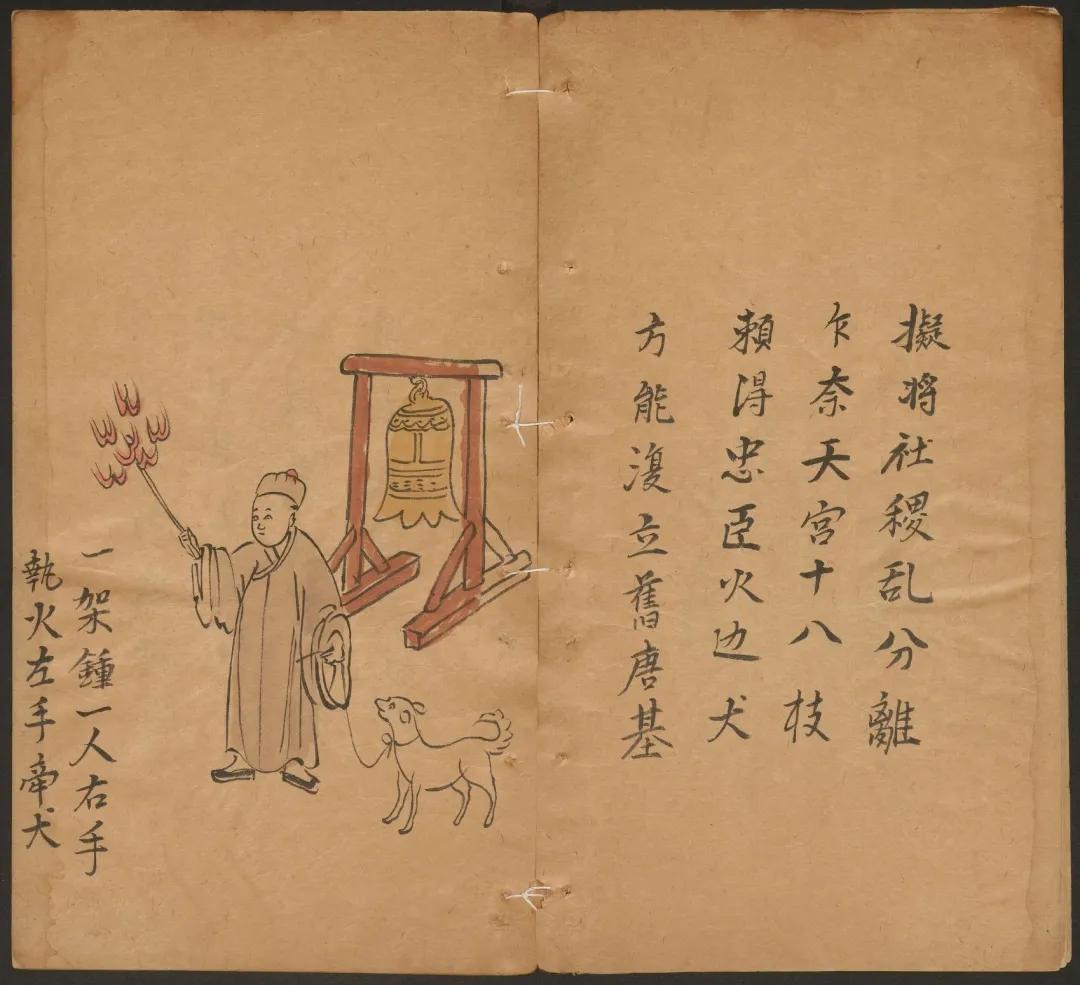 擬將社稷乱分離
乍奈天宮十八枝
賴淂忠臣火边犬
方能復立舊唐基
一架鍾一人右手
執火左手牽犬